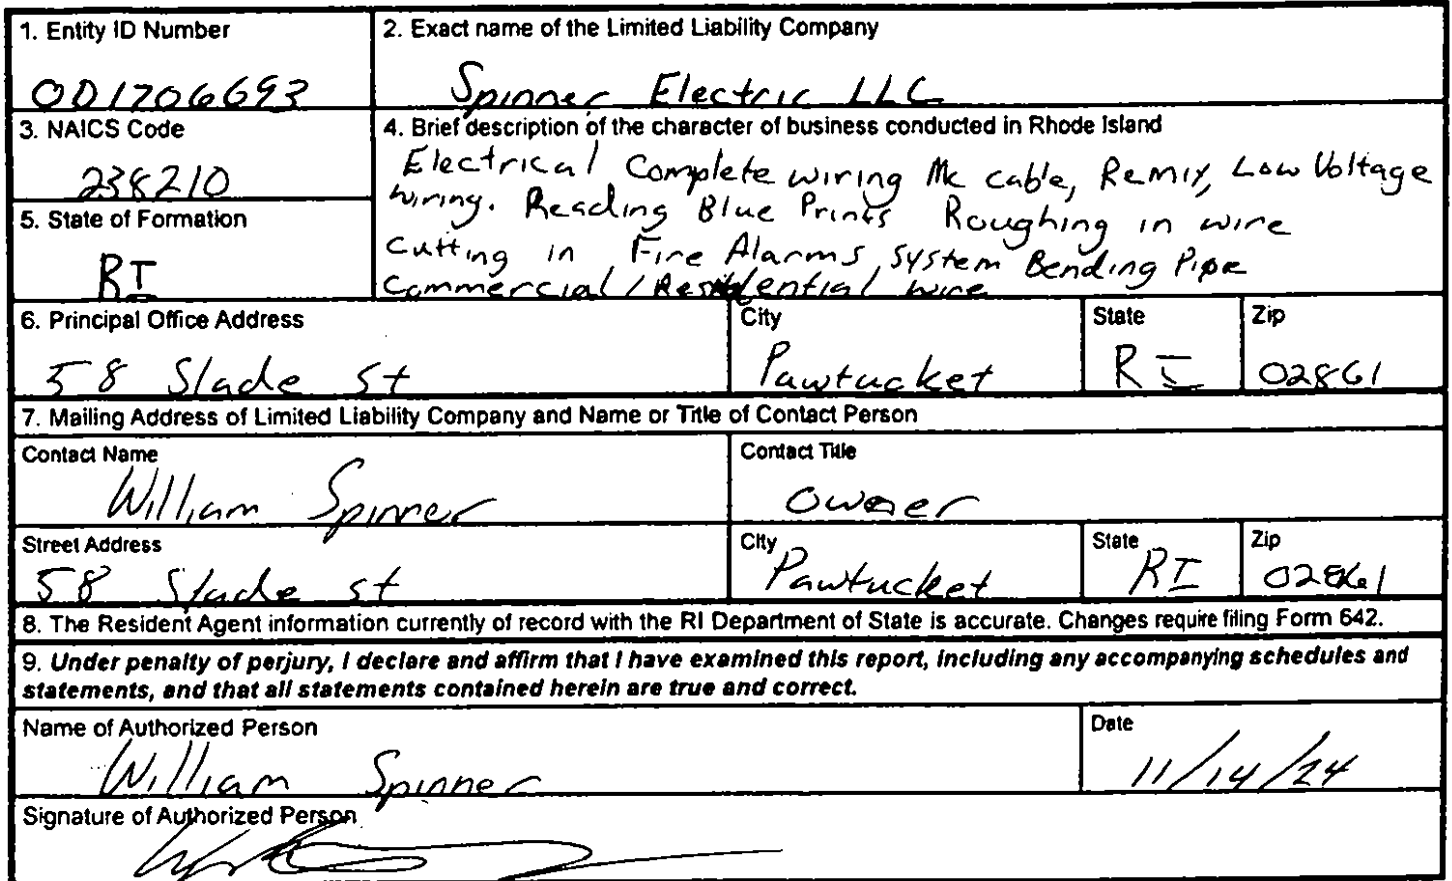 1. Entity ID Number
001706693
2. Exact name of the Limited Liability Company
Spinner Electric LLC
3. NAICS Code
238210
4. Brief description of the character of business conducted in Rhode Island
Electrical Complete wiring Mc cable, Remix, Low Voltage
wiring. Reading Blue Prints Roughing in wire
cutting in Fire Alarms, System Bending Pipe
Commercial / Residential wire
5. State of Formation
RI
6. Principal Office Address
58 Slade st
City
Pawtucket
State
RI
Zip
02861
7. Mailing Address of Limited Liability Company and Name or Title of Contact Person
Contact Name
William Spinner
Contact Title
owner
Street Address
58 Slade st
City
Pawtucket
State
RI
Zip
02861
8. The Resident Agent information currently of record with the RI Department of State is accurate. Changes require filing Form 642.
9. Under penalty of perjury, I declare and affirm that I have examined this report, including any accompanying schedules and
statements, and that all statements contained herein are true and correct.
Name of Authorized Person
William Spinner
Date
11/14/24
Signature of Authorized Person